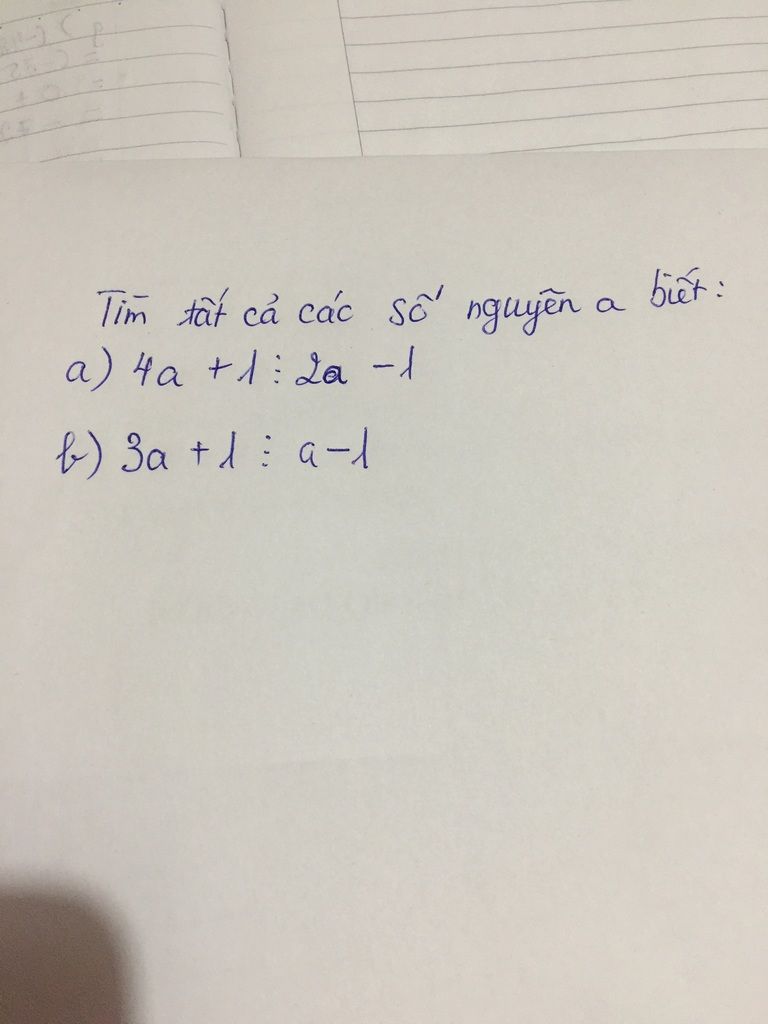 Tìm tất cả các số nguyên a biết:
a) 4a + 1 ⋮ 2a - 1
b) 3a + 1 ⋮ a - 1